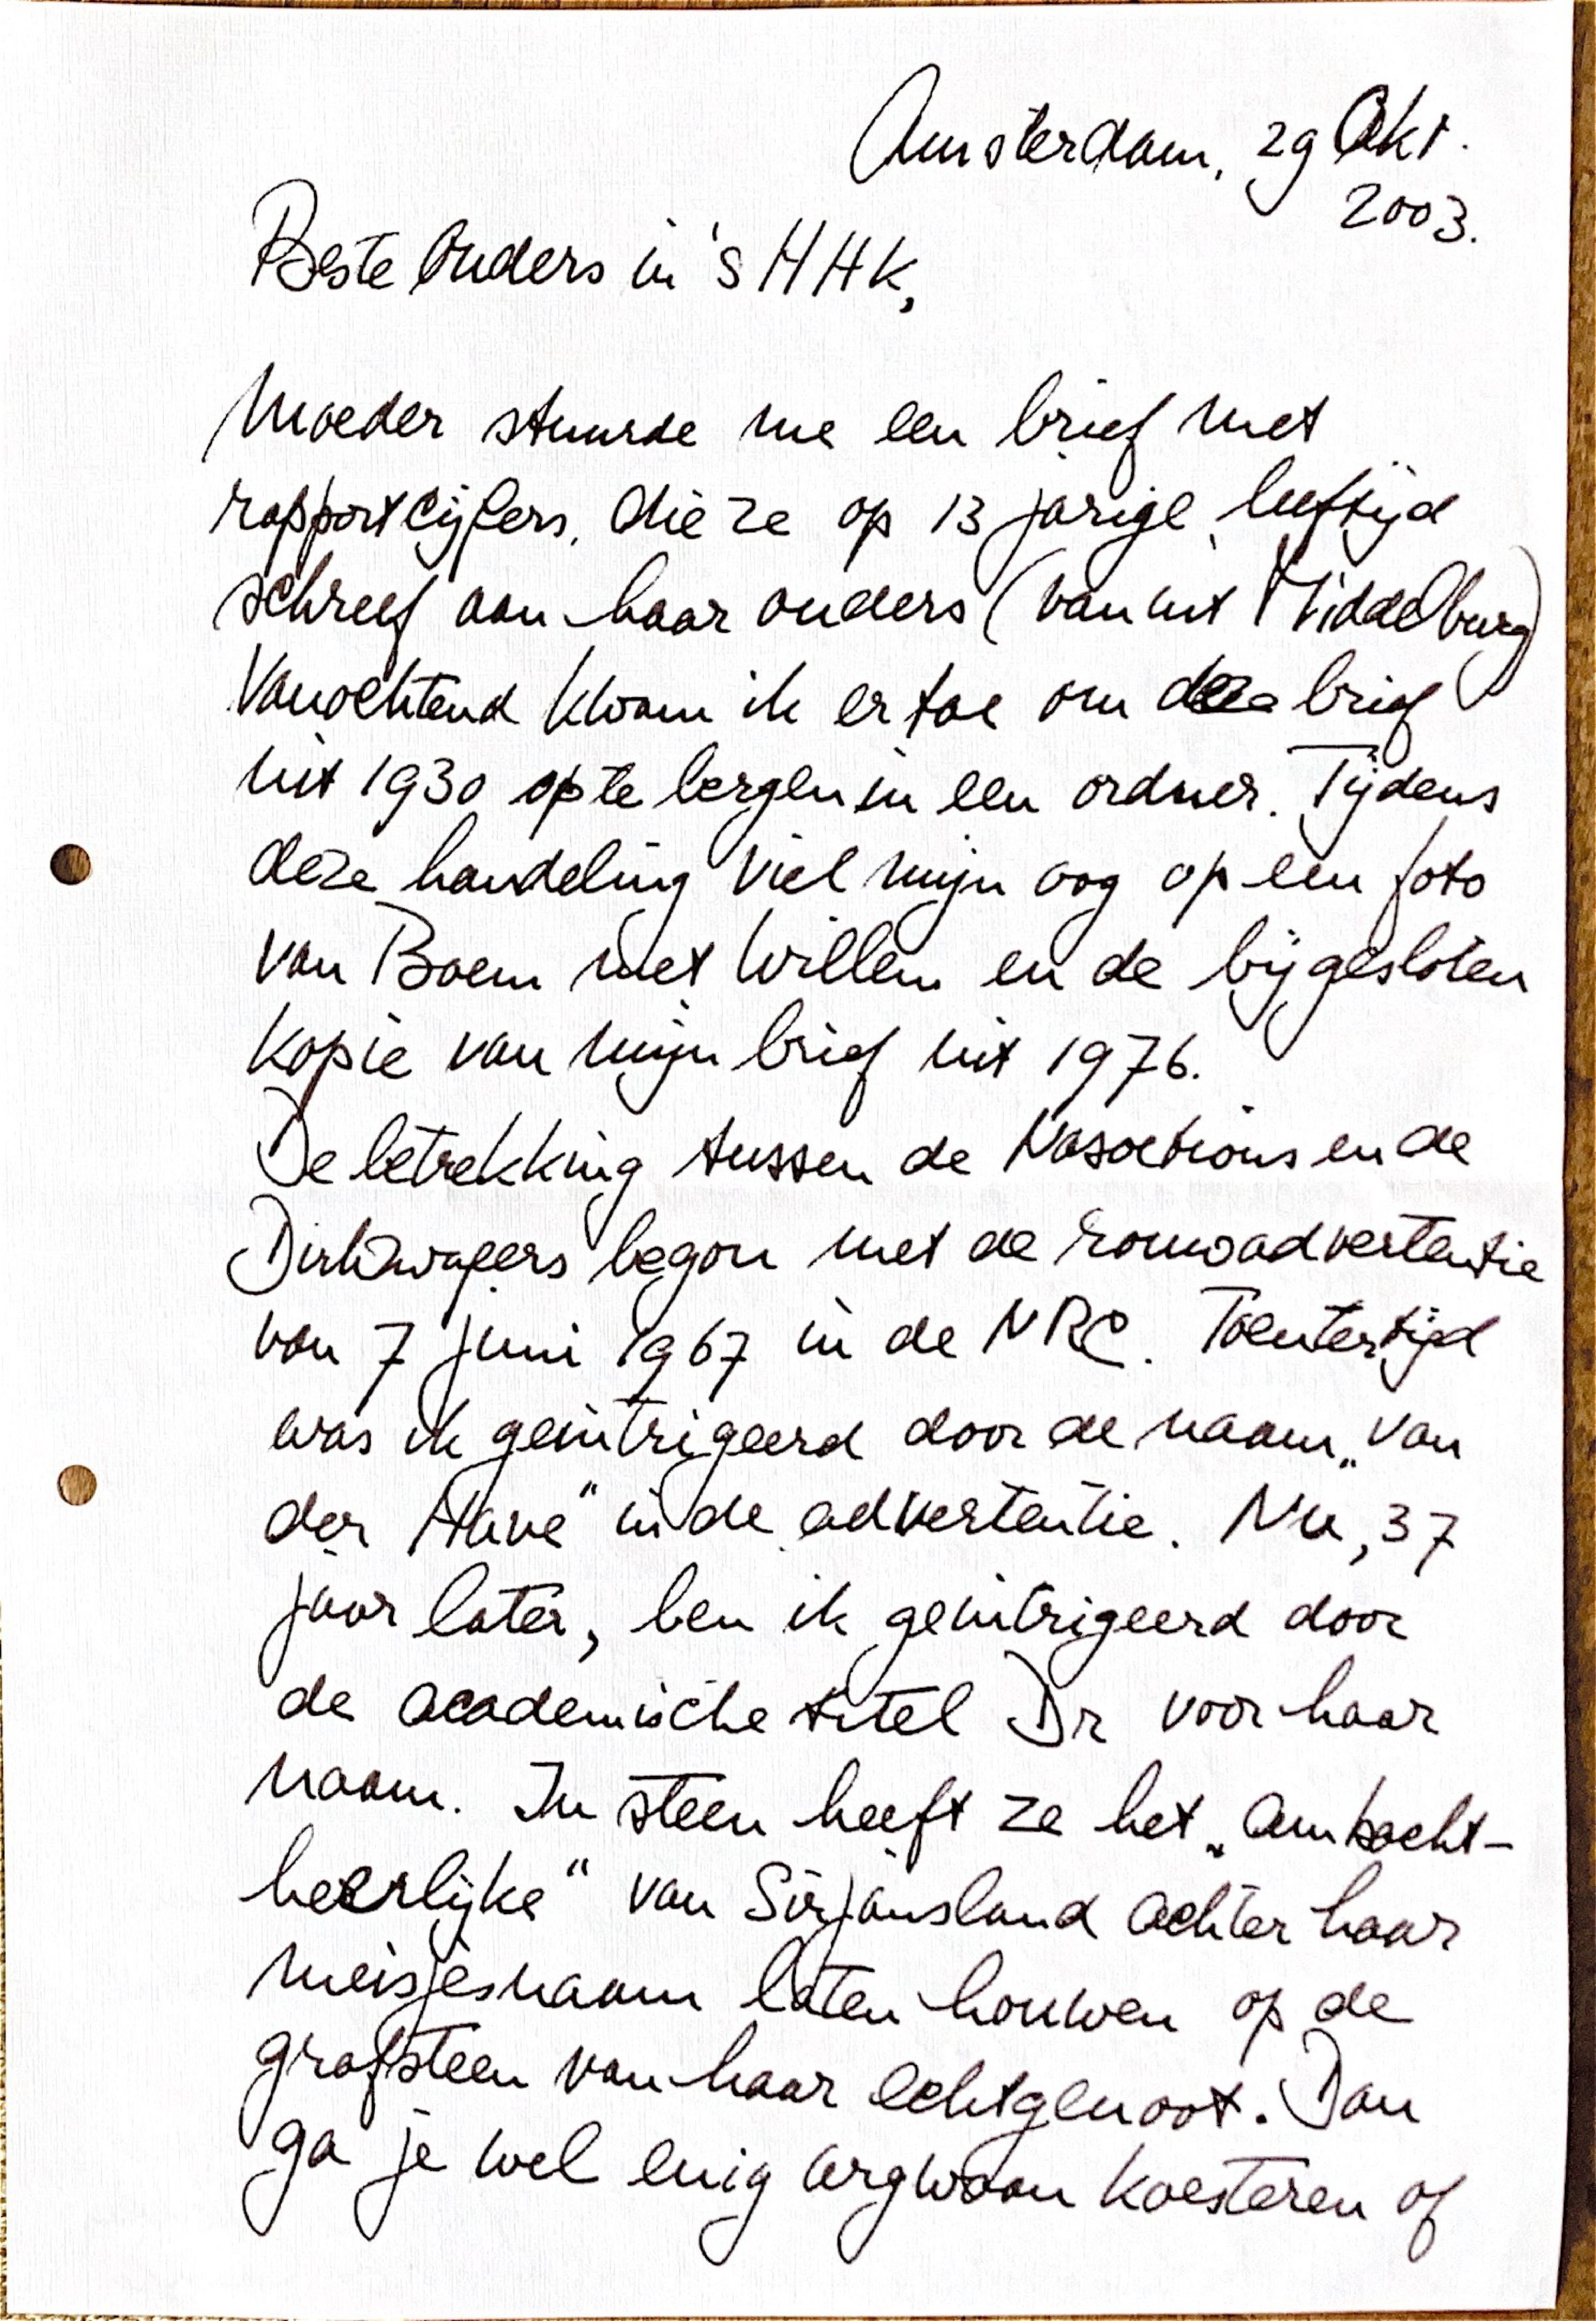 Amsterdam, 29 Okt.
2003.
Beste Ouders in 's HHK,
Moeder stuurde me een brief met
rapportcijfers, die ze op 13 jarige leeftijd
schreef aan haar ouders (vanuit Middelburg)
Vanochtend kwam ik er toe om deze brief
uit 1930 op te bergen in een ordner. Tijdens
deze handeling viel mijn oog op een foto
van Boem met Willem en de bijgesloten
kopie van mijn brief uit 1976.
De betrekking tussen de Nasoetions en de
Dirkzwagers begon met de rouwadvertentie
van 7 juni 1967 in de NRC. Toentertijd
was ik geintrigeerd door de naam „van
der Have" in de advertentie. Nu, 37
jaar later, ben ik geintrigeerd door
de academische titel Dr voor haar
naam. In steen heeft ze het „ambacht-
heerlijke" van Sirjansland achter haar
meisjesnaam laten houwen op de
grafsteen van haar echtgenoot. Dan
ga je wel enig argwaan koesteren of